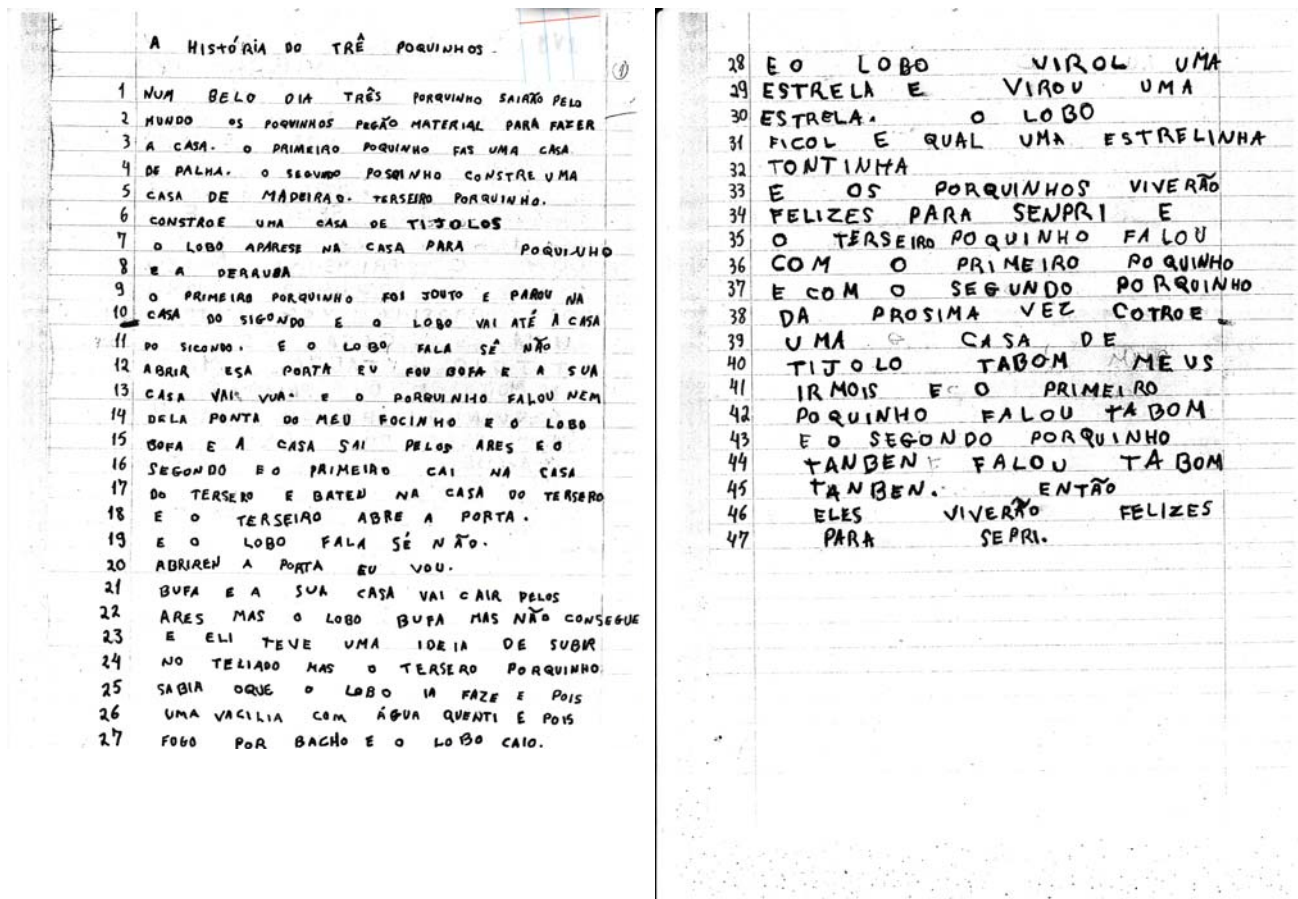 A HISTÓRIA DO TRÊ POQUINHOS.
(1)
1 NUM BELO DIA TRÊS PORQUINHO SAIRÃO PELO
2 MUNDO OS POQUINHOS PEGÃO MATERIAL PARA FAZER
3 A CASA. O PRIMEIRO POQUINHO FAS UMA CASA
4 DE PALHA. O SEGUNDO POSQINHO CONSTRE UMA
5 CASA DE MADEIRAO. TERSEIRO PORQUINHO.
6 CONSTROE UMA CASA DE TIJOLOS
7 O LOBO APARESE NA CASA PARA POQUINHO
8 E A DERRUBA
9 O PRIMEIRO PORQUINHO FOI JOUTO E PAROU NA
10 CASA DO SIGONDO E O LOBO VAI ATÉ A CASA
11 DO SICONDO. E O LOBO FALA SÊ NÃO
12 ABRIR ESA PORTA EU FOU BOFA E A SUA
13 CASA VAI VUA. E O PORQUINHO FALOU NEM
14 DELA PONTA DO MEU FOCINHO E O LOBO
15 BOFA E A CASA SAI PELOS ARES E O
16 SEGONDO E O PRIMEIRO CAI NA CASA
17 DO TERSERO E BATEU NA CASA DO TERSERO
18 E O TERSEIRO ABRE A PORTA.
19 E O LOBO FALA SÉ NÃO.
20 ABRIREN A PORTA EU VOU.
21 BUFA E A SUA CASA VAI CAIR PELOS
22 ARES MAS O LOBO BUFA MAS NÃO CONSEGUE
23 E ELI TEVE UMA IDEIA DE SUBIR
24 NO TELIADO MAS O TERSERO PORQUINHO
25 SABIA OQUE O LOBO IA FAZE E POIS
26 UMA VACILIA COM ÁGUA QUENTI E POIS
27 FOGO POR BACHO E O LOBO CAIO.
28 E O LOBO VIROL UMA
29 ESTRELA E VIROU UMA
30 ESTRELA. O LOBO
31 FICOL E QUAL UMA ESTRELINHA
32 TONTINHA
33 E OS PORQUINHOS VIVERÃO
34 FELIZES PARA SENPRI E
35 O TERSEIRO POQUINHO FALOU
36 COM O PRIMEIRO POQUINHO
37 E COM O SEGUNDO PORQUINHO
38 DA PROSIMA VEZ COTROE
39 UMA CASA DE
40 TIJOLO TABOM MEUS
41 IRMOIS E O PRIMEIRO
42 POQUINHO FALOU TA BOM
43 E O SEGONDO PORQUINHO
44 TANBEN FALOU TA BOM
45 TANBEN. ENTÃO
46 ELES VIVERÃO FELIZES
47 PARA SEPRI.